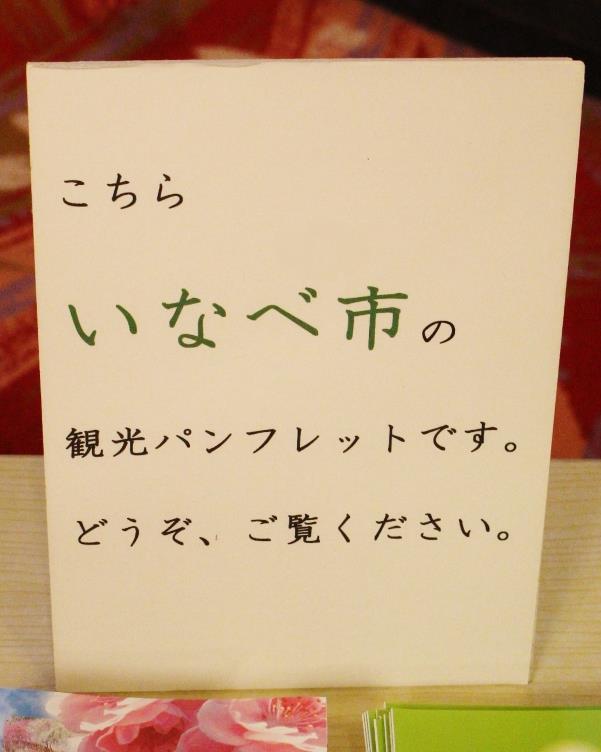 こちら
いなべ市の
観光パンフレットです。
どうぞ、ご覧ください。